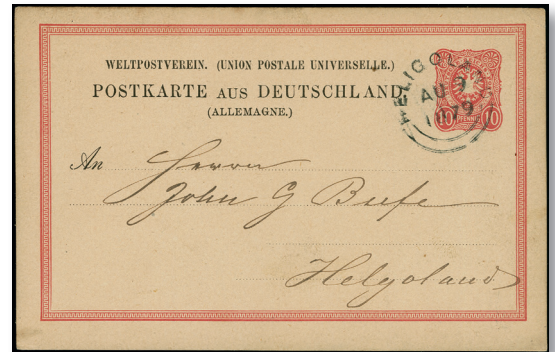 WELTPOSTVEREIN. (UNION POSTALE UNIVERSELLE.)
POSTKARTE AUS DEUTSCHLAND
(ALLEMAGNE.)
HELIGOLAND
AU 9
1879
10 PFENNIG 10
An Herrn
John G
Helgoland